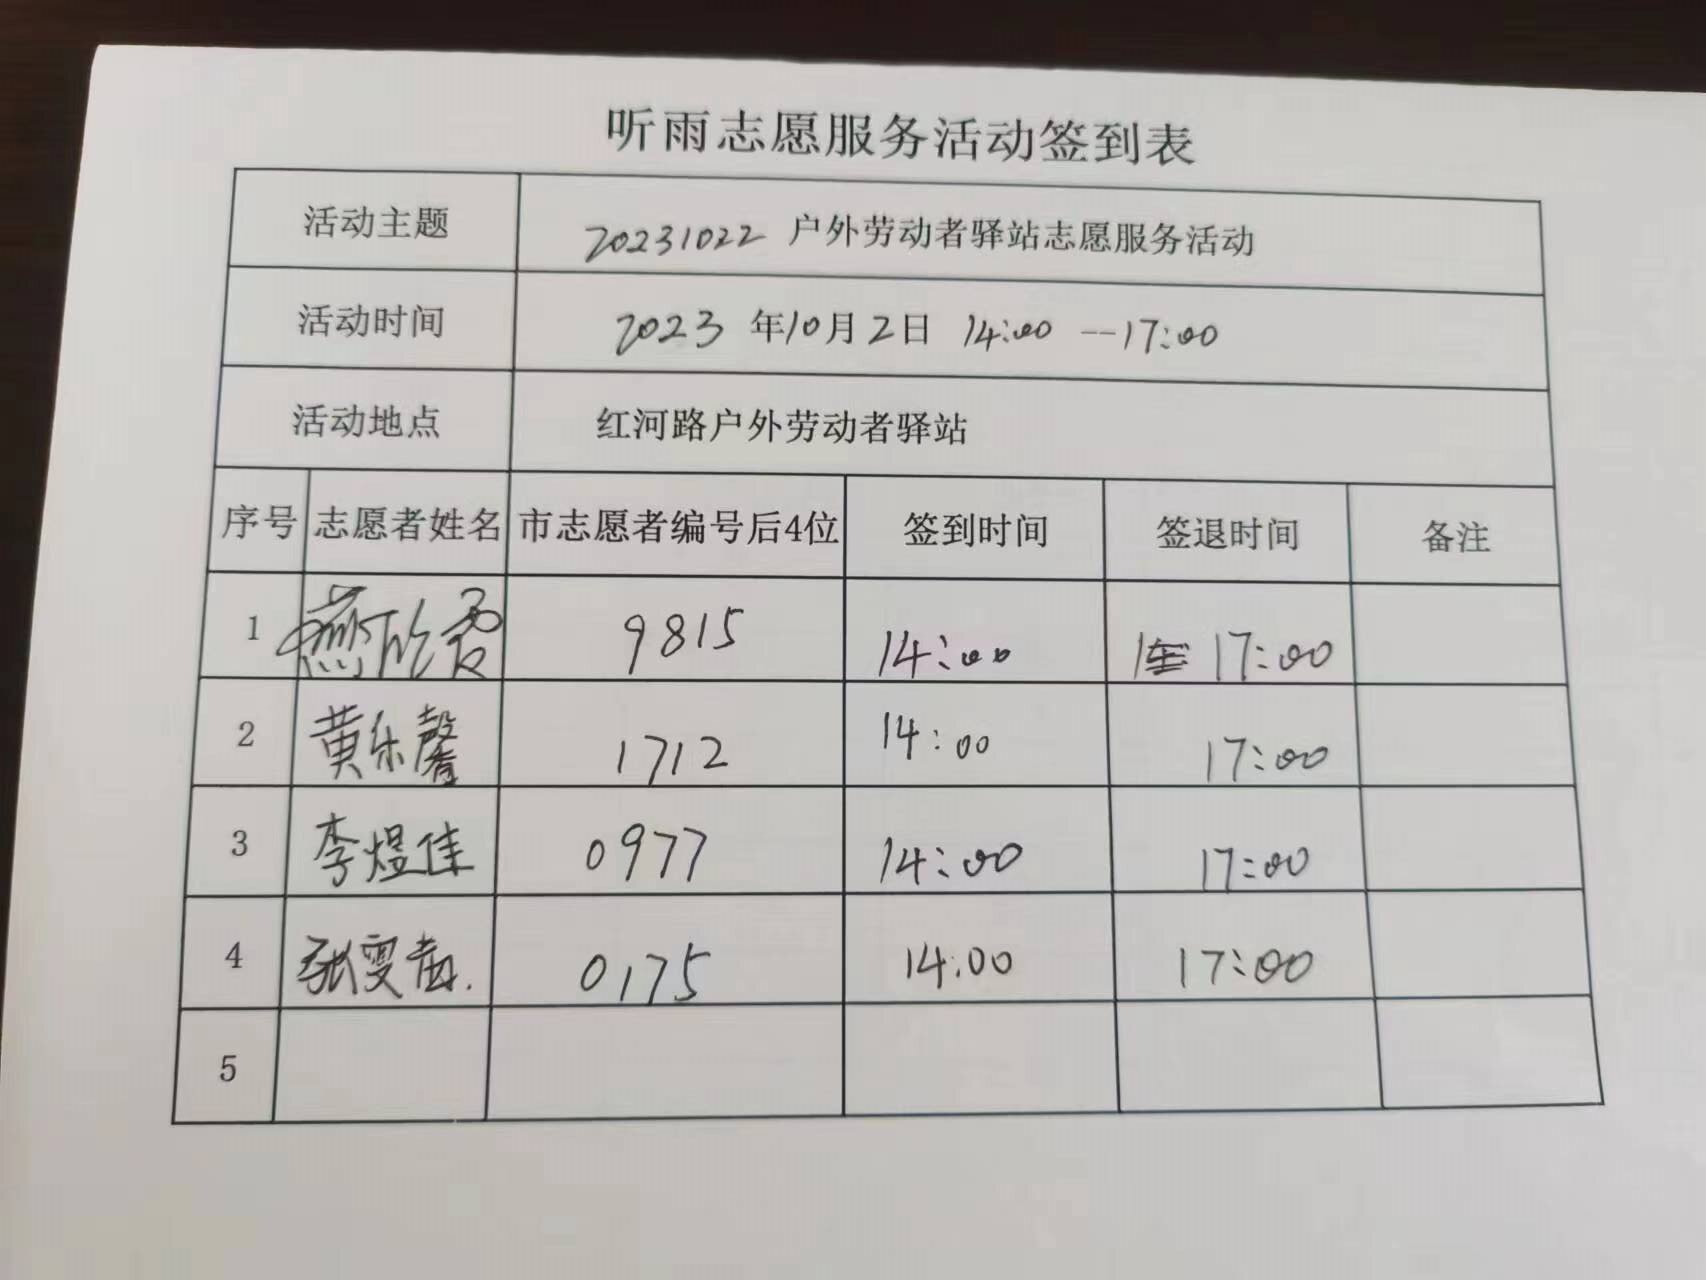 听雨志愿服务活动签到表
活动主题 20231022 户外劳动者驿站志愿服务活动
活动时间 2023 年10月2日 14:00 --17:00
活动地点 红河路户外劳动者驿站
序号 志愿者姓名 市志愿者编号后4位 签到时间 签退时间 备注
1 燕欣霞 9815 14:00 17:00
2 黄乐馨 1712 14:00 17:00
3 李煜佳 0977 14:00 17:00
4 张雯 0175 14:00 17:00
5